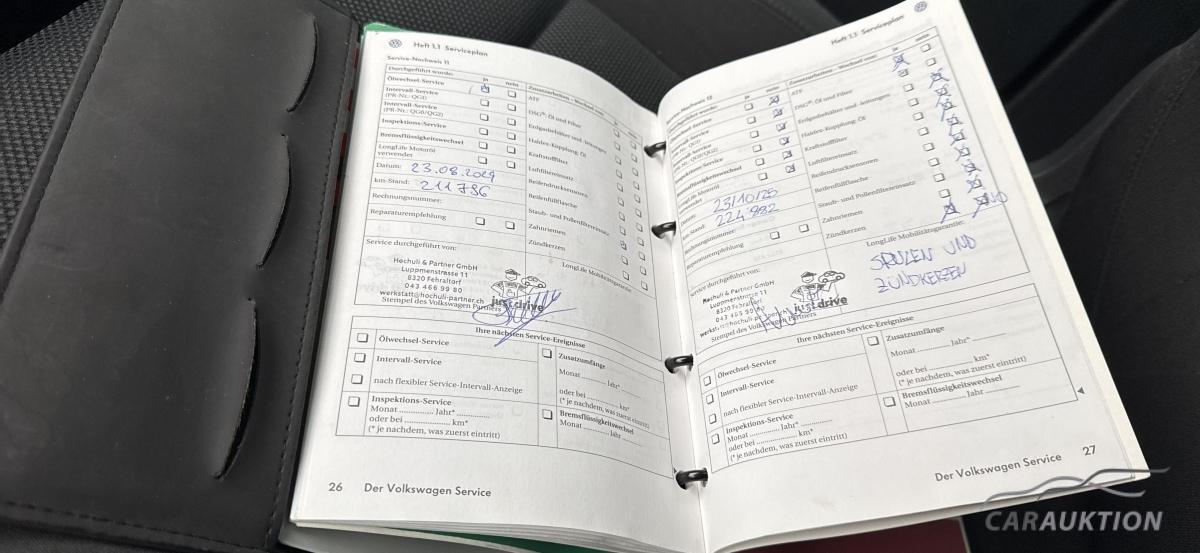 Heft 1.1 Serviceplan
Service-Nachweis 11
Durchgeführt wurde: ja nein
Ölwechsel-Service
Intervall-Service
(PR-Nr.: QG1)
Intervall-Service
(PR-Nr.: QG0/QG2)
Inspektions-Service
Bremsflüssigkeitswechsel
LongLife Motoröl
verwendet
Datum: 23.08.2024
km-Stand: 211786
Rechnungsnummer:
Reparaturempfehlung
ATF
DSG®: Öl und Filter
Erdgasbehälter und -leitungen
Haldex-Kupplung: Öl
Kraftstofffilter
Luftfiltereinsatz
Reifendrucksensoren
Reifenfüllflasche
Staub- und Pollenfiltereinsatz
Zahnriemen
Zündkerzen
LongLife Mobilitätsgarantie:
Service durchgeführt von:
Hochuli & Partner GmbH
Luppmenstrasse 11
8320 Fehraltorf
043 466 99 80
werkstatt@hochuli-partner.ch
just drive
Stempel des Volkswagen Partners
Ihre nächsten Service-Ereignisse
Ölwechsel-Service
Intervall-Service
nach flexibler Service-Intervall-Anzeige
Inspektions-Service
Monat .............. Jahr* ..............
oder bei .............. km*
(* je nachdem, was zuerst eintritt)
Zusatzumfänge
Monat .............. Jahr*
oder bei .............. km*
(* je nachdem, was zuerst eintritt)
Bremsflüssigkeitswechsel
Monat .............. Jahr ..............
26 Der Volkswagen Service
Heft 1.1 Serviceplan
Service-Nachweis 12
ja nein
Intervall-Service
Inspektions-Service
Bremsflüssigkeitswechsel
LongLife Motoröl
verwendet
Datum: 23/10/25
km-Stand: 224 882
Rechnungsnummer:
Reparaturempfehlung
Zusatzarbeiten - Wechsel von: ja nein
ATF
DSG®: Öl und Filter
Erdgasbehälter und -leitungen
Haldex-Kupplung: Öl
Kraftstofffilter
Luftfiltereinsatz
Reifendrucksensoren
Reifenfüllflasche
Staub- und Pollenfiltereinsatz
Zahnriemen
Zündkerzen
LongLife Mobilitätsgarantie:
SPULEN UND
ZÜNDKERZEN
Service durchgeführt von:
Hochuli & Partner GmbH
Luppmenstrasse 11
8320 Fehraltorf
043 466 99 80
just drive
Stempel des Volkswagen Partners
Ihre nächsten Service-Ereignisse
Ölwechsel-Service
Intervall-Service
nach flexibler Service-Intervall-Anzeige
Inspektions-Service
Monat .............. Jahr* ..............
oder bei .............. km*
(* je nachdem, was zuerst eintritt)
Zusatzumfänge
Monat .............. Jahr* ..............
oder bei .............. km*
(* je nachdem, was zuerst eintritt)
Bremsflüssigkeitswechsel
Monat .............. Jahr ..............
Der Volkswagen Service 27
CARAUKTION